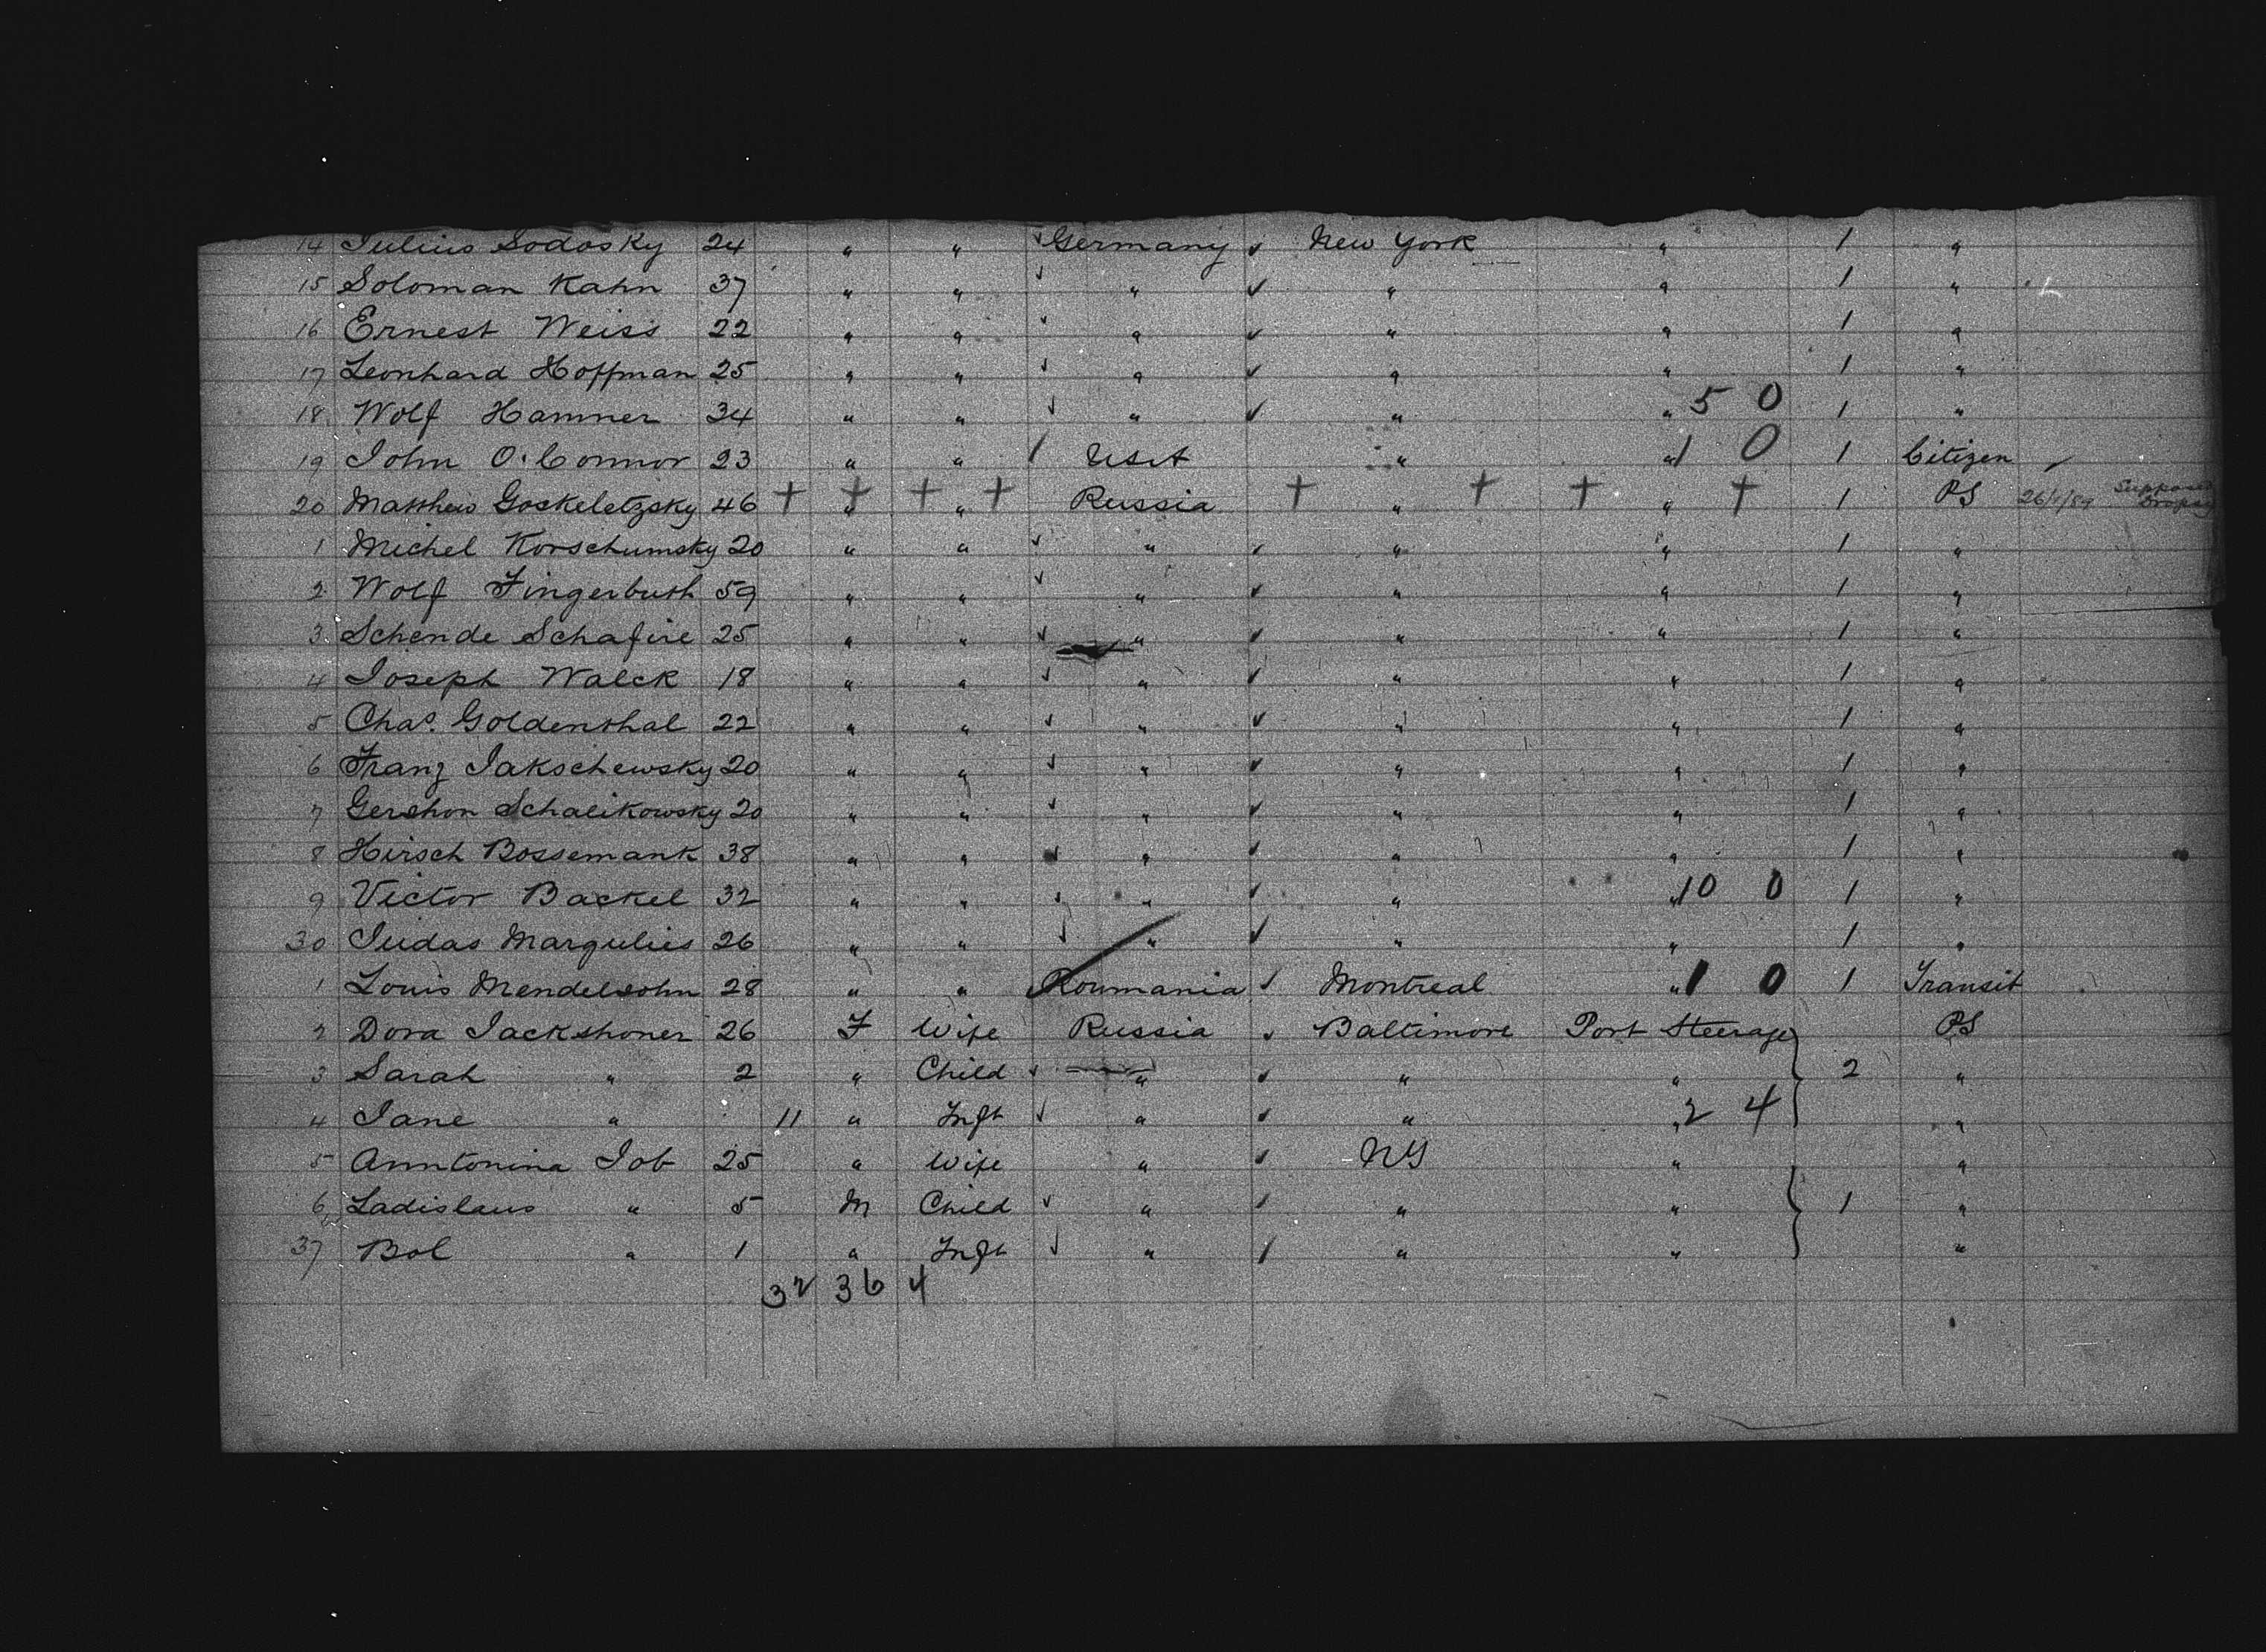 14 Julius Sodosky 24 " " Germany New York " 1 "
15 Soloman Kahn 37 " " " " " 1 "
16 Ernest Weiss 22 " " " " " 1 "
17 Leonhard Hoffman 25 " " " " " 1 "
18 Wolf Hamner 34 " " " " " 5 0 1 "
19 John O'Connor 23 " " USA " " 1 0 1 Citizen
20 Matthew Goskeletzsky 46 + + " + " + Russia + " + + " + 1 PS 26/1/89 Supposed Dropsy
1 Michel Korschumsky 20 " " " " " 1 "
2 Wolf Fingerbuth 59 " " " " " 1 "
3 Schende Schafire 25 " " " " " 1 "
4 Joseph Walck 18 " " " " " 1 "
5 Chas. Goldenthal 22 " " " " " 1 "
6 Franz Jakschewsky 20 " " " " " 1 "
7 Gershon Schalikowsky 20 " " " " " 1 "
8 Hirsch Bossemank 38 " " " " " 1 "
9 Victor Backel 32 " " " " " 10 0 1 "
30 Judas Margulies 26 " " " " " 1 "
1 Louis Mendelsohn 28 " " Roumania Montreal " 1 0 1 Transit
2 Dora Jackshoner 26 F Wife Russia Baltimore Port Steerage PS
3 Sarah " 2 " Child " " " 2 "
4 Jane " 11 " Inft " " " 2 4 "
5 Anntonina Job 25 " Wife " NY " "
6 Ladislaus " 5 M Child " " " 1 "
37 Bol " 1 " Inft " " " "
32 36 4